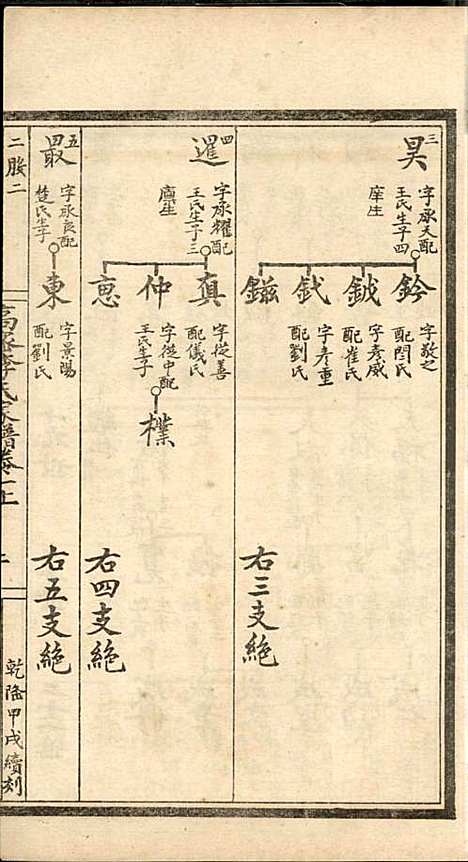 三
昊
字承天配
王氏生子四
庠生
鈐
字敬之
配閆氏
鉞
字彥威
配崔氏
鉽
字彥重
配劉氏
鎡
右三支絕
四
暹
字承耀配
王氏生子三
廩生
真
字從善
配儀氏
仲
字從中配
王氏生子
檏
悳
右四支絕
五
最
字承良配
楚氏生子
東
字景陽
配劉氏
右五支絕
二股二
李氏家譜卷上
乾隆甲戌續刻